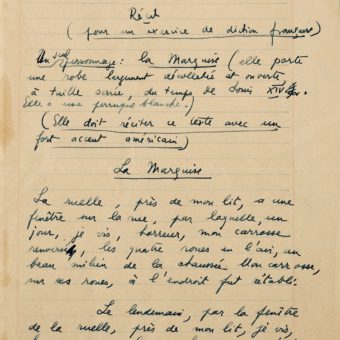 Récit
(pour un exercice de diction française)
Un seul personnage : la Marquise (elle porte
une robe largement décolletée et ouverte
à taille serrée, du temps de Louis XIV
Elle a une perruque blanche.)
(Elle doit réciter ce texte avec un
fort accent américain)
La Marquise
La ruelle, près de mon lit, a une
fenêtre sur la rue, par laquelle, un
jour, je vis, horreur, mon carrosse
renversé, les quatre roues en l'air, au
beau milieu de la chaussée. Mon carrosse,
sur ses roues, à l'endroit fut établi.
Le lendemain, par la fenêtre
de la ruelle, près de mon lit, je vis,